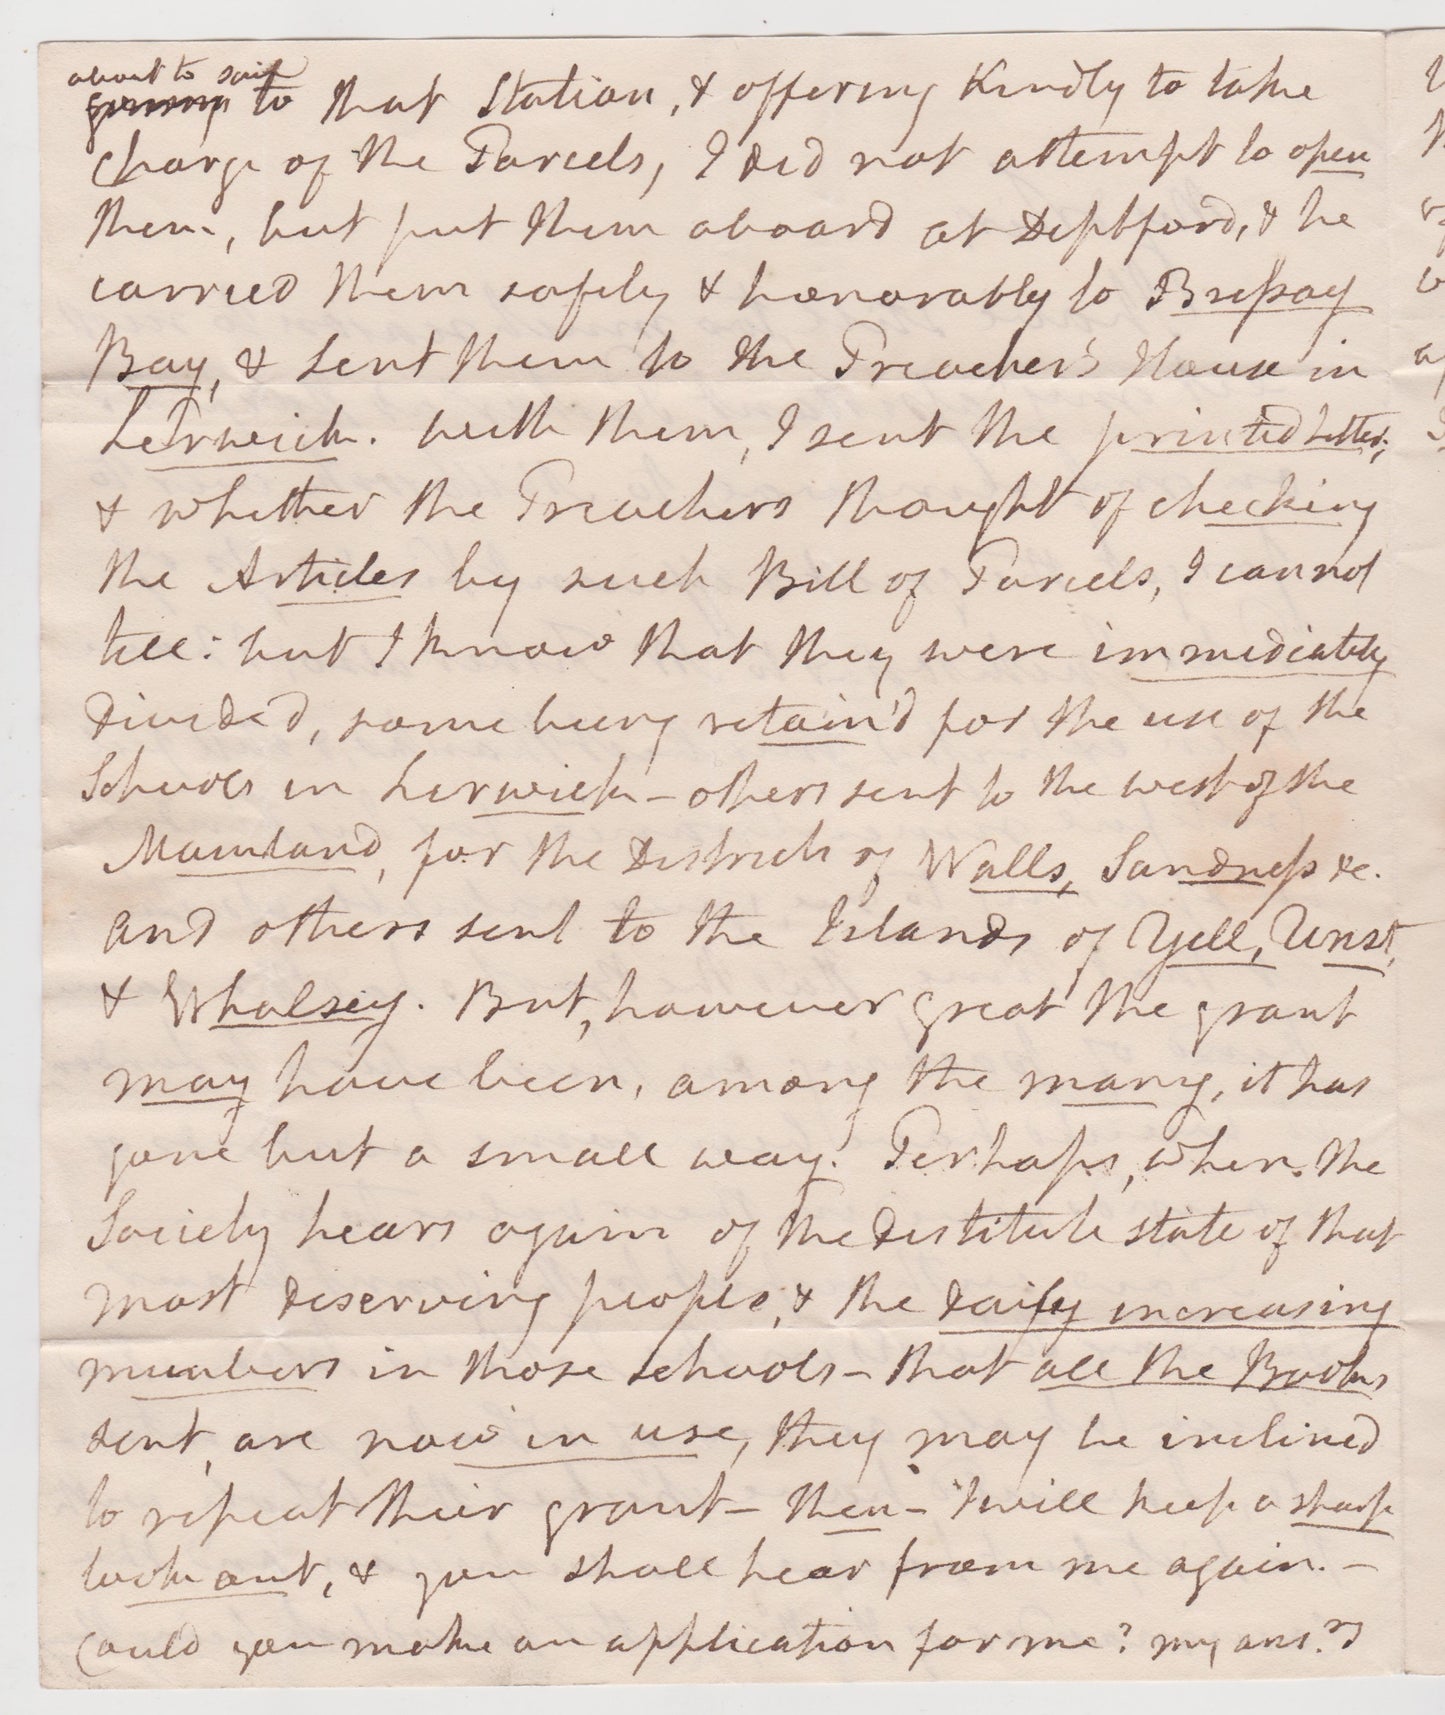 about to sail
to that Station, & offering Kindly to take
charge of the Parcels, I did not attempt to open
them, but put them aboard at Deptford, & he
carried them safely & honorably to Bressay
Bay, & sent them to the Preacher's House in
Lerwick. With them, I sent the printed Letter;
& whether the Preachers thought of checking
the Articles by such Bill of Parcels, I cannot
tell: but I know that they were immediately
divided, some being retain'd for the use of the
Schools in Lerwick – others sent to the west of the
Mainland, for the Districts of Walls, Sandness &c.
and others sent to the Islands of Yell, Unst,
& Whalsey. But, however great the grant
may have been, among the many, it has
gone but a small way. Perhaps, when the
Society hears again of the destitute state of that
most deserving people, & the daily increasing
numbers in those schools – that all the Books
sent, are now in use, they may be inclined
to repeat their grant – then – I will keep a sharp
look out, & you shall hear from me again. –
Could you make an application for me? my ans.rs